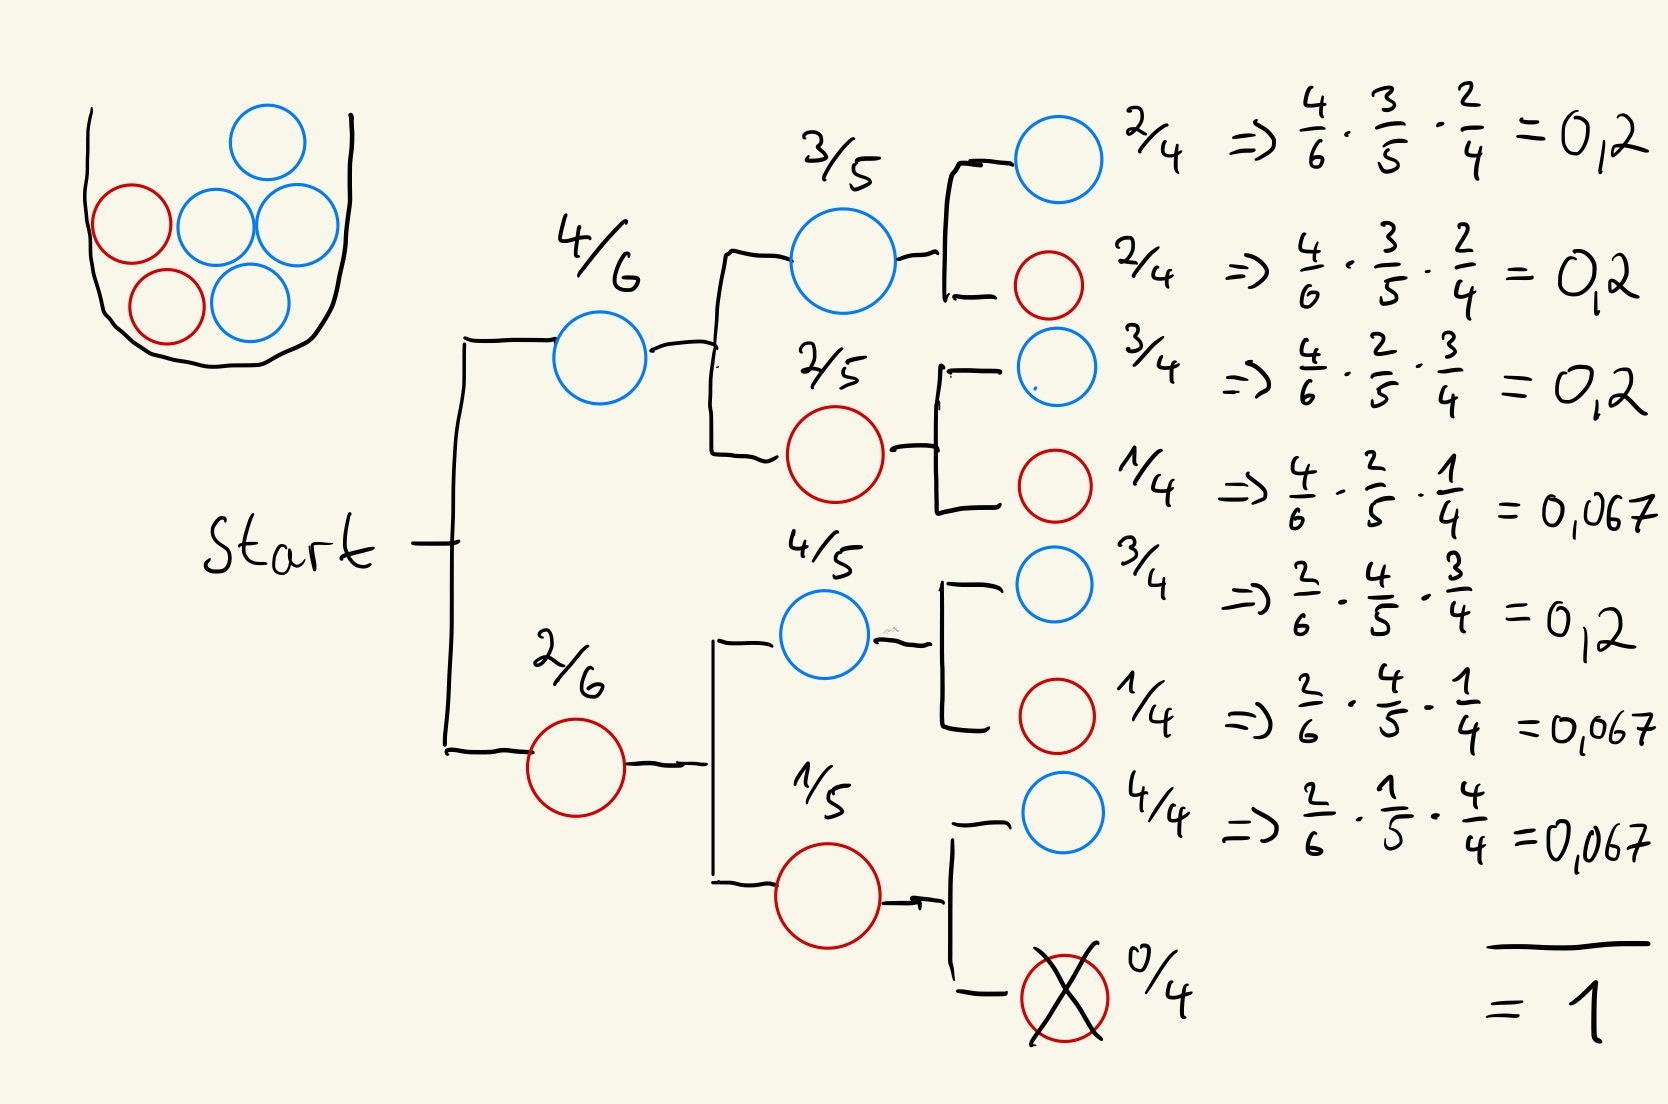 4/6
2/6
3/5
2/5
4/5
1/5
Start
2/4 => 4/6 · 3/5 · 2/4 = 0,2
2/4 => 4/6 · 3/5 · 2/4 = 0,2
3/4 => 4/6 · 2/5 · 3/4 = 0,2
1/4 => 4/6 · 2/5 · 1/4 = 0,067
3/4 => 2/6 · 4/5 · 3/4 = 0,2
1/4 => 2/6 · 4/5 · 1/4 = 0,067
4/4 => 2/6 · 1/5 · 4/4 = 0,067
0/4
= 1